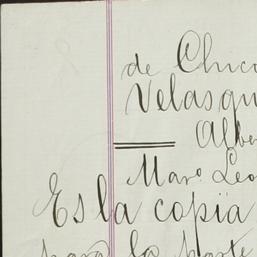 de Chico
Velasqu
Albe
Maro Leo
Es la copia
para la parte